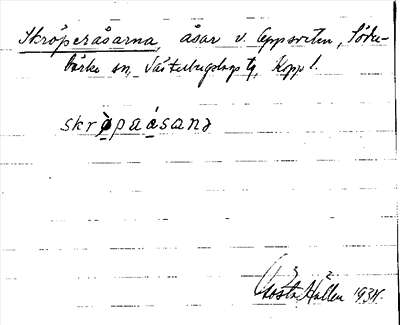 Skröperåsarna, åsar v. Oppsveten, Söder-
bärke sn, Västerbergslags tg, Kopp l.
skrɷ̀paásanə
Gösta Hallén 1934.